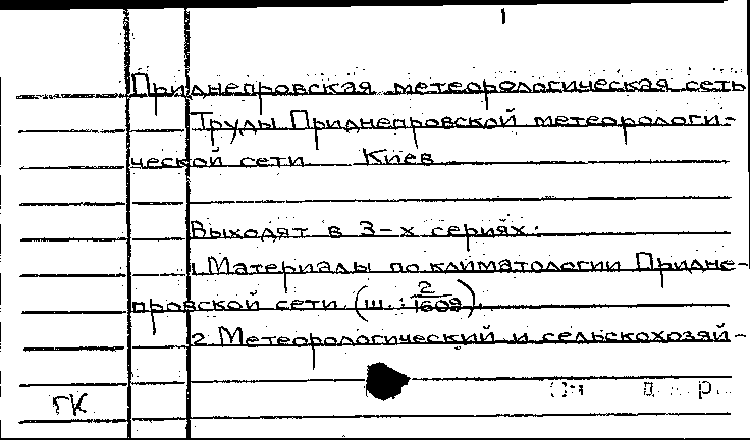 1
Приднепровская метеорологическая сеть
Труды Приднепровской метеорологи-
ческой сети Киев
Выходят в 3-х сериях:
1. Материалы по климатологии Придне-
провской сети (ш.: 2/1609).
2. Метеорологический и сельскохозяй-
См. д. р.
ГК